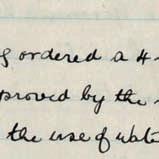 ordered a 4-
by the
the use of wat